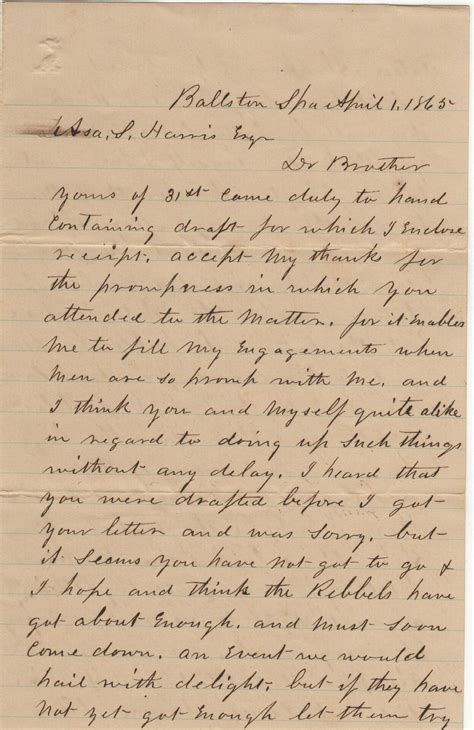 Ballston Spa April 1, 1865
Asa, S, Harris Esqr
Dr Brother
yours of 31st came duly to hand
Containing draft for which I Enclose
receipt. accept My thanks for
the prompness in which you
attended to the Matter. for it Enables
Me to fill My Engagements when
Men are so promp with Me. and
I think you and Myself quite alike
in regard to doing up such things
without any delay. I heard that
you were drafted before I got
your letter and was sorry. but
it seems you have not got to go &
I hope and think the Rebbels have
got about Enough. and Must soon
Come down. an Event we would
hail with delight. but if they have
Not yet got Enough let them try